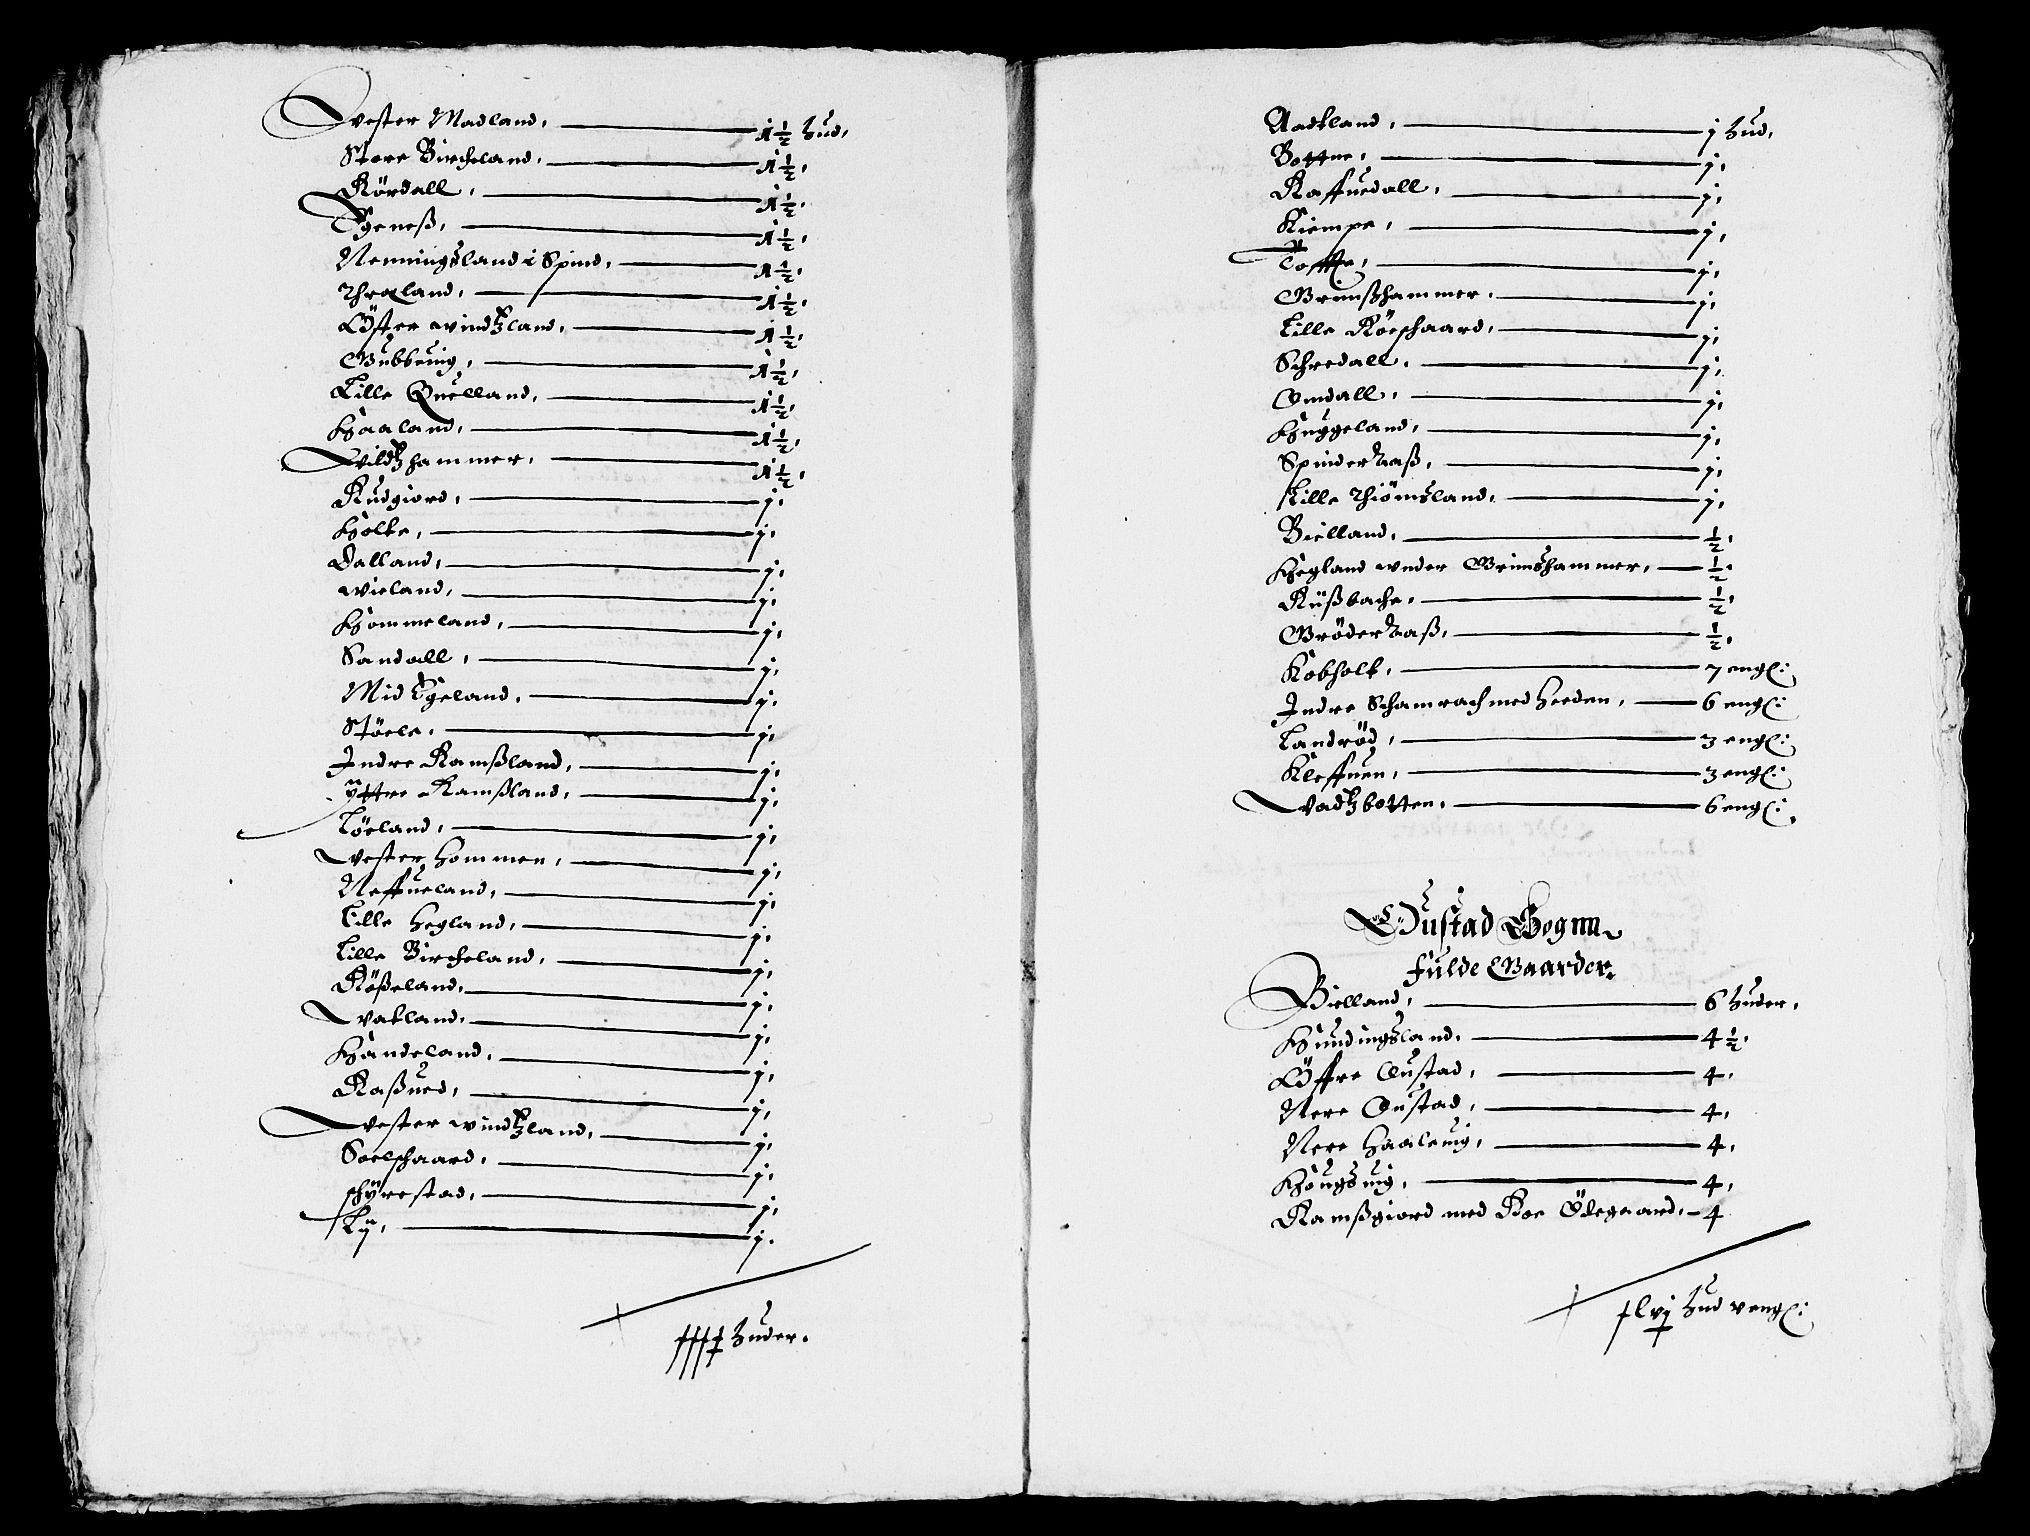 Vester Madland, 1½ hud,
Store Bircheland, 1½,
Rördall, 1½,
Egeneß, 1½,
Nenningsland i Spind, 1½,
Thraland, 1½,
Öffter windtzland, 1½,
Gubbeuig, 1½,
Lille Quelland, 1½,
Haaland, 1½,
Vildtzhammer, 1½,
Rudgiord, j,
Holke, j,
Dalland, j,
wieland, j,
Hommeland, j,
Sandall, j,
Mid Egeland, j,
Stöele, j,
Indre Ramßland, j,
ÿttre Ramßland, j,
Löeland, j,
Vester Hommen, j,
Neffueland, j,
Lille Hegland, j,
Lille Bircheland, j,
Rößeland, j,
Vatland, j,
Handeland, j,
Raßued, j,
Vester windtzland, j,
Soelschaard, j,
schÿrestad, j,
Lÿ, j.
huder.
Aadland, j hud,
Bottne, j,
Raffuedall, j,
Kiempe, j,
Tofte, j,
Grimßhammer, j,
Lille Röeschaard, j,
Schredall, j,
Omdall, j,
Huggeland, j,
Spinderaaß, j,
Lille Thiömsland, j,
Bielland, ½,
Hegland wnder Grimshammer, ½,
Rüßbache, ½,
Gröderaaß, ½,
Kobholt, 7 engl:
Indre Schamrach med Heeden, 6 engl:
Landröd, 3 engl:
Kleffuen, 3 engl:
Vadtzbotten, 6 engl:
Oustad Sognn
Fulde Gaarder
Bielland, 6 huder,
Hundingsland, 4½,
Öffre Oustad, 4,
Nere Oustad, 4,
Nere Haaleuig, 4,
Hougsuig, 4,
Ramßgiord med Roe Ödegaard, 4
xlvj hud v engl: